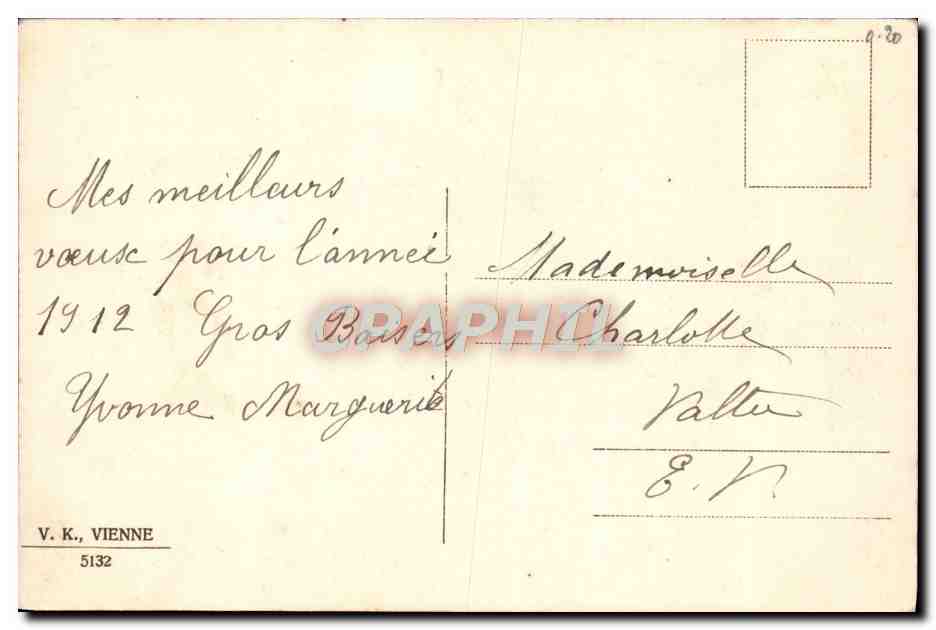 0.20
Mes meilleurs
vœux pour l'année
1912 Gros Baisers
Yvonne Marguerite
Mademoiselle
Charlotte
Valter
E. V.
V. K., VIENNE
5132
CPAPHIL